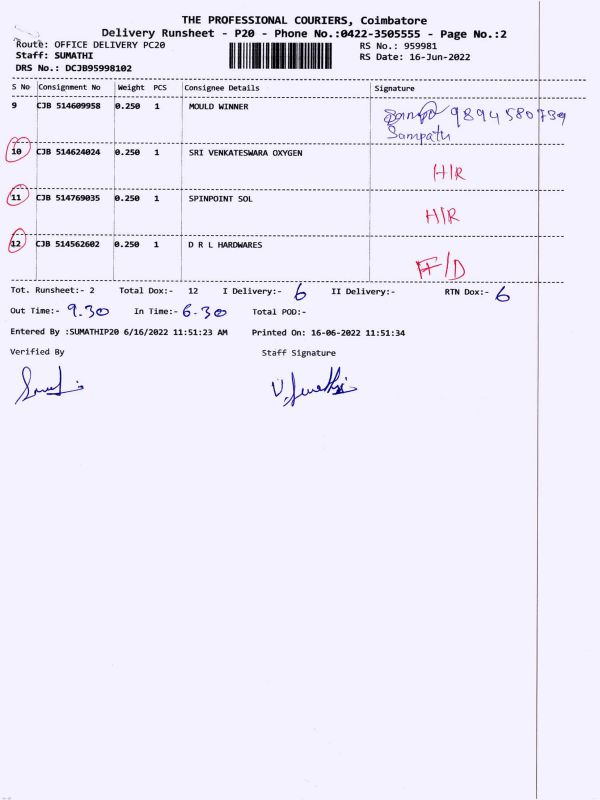 THE PROFESSIONAL COURIERS, Coimbatore
Delivery Runsheet - P20 - Phone No.:0422-3505555 - Page No.:2
Route: OFFICE DELIVERY PC20 RS No.: 959981
Staff: SUMATHI RS Date: 16-Jun-2022
DRS No.: DCJB95998102
S No Consignment No Weight PCS Consignee Details Signature
9 CJB 514609958 0.250 1 MOULD WINNER 9894580739
Sampath
10 CJB 514624024 0.250 1 SRI VENKATESWARA OXYGEN H/R
11 CJB 514769035 0.250 1 SPINPOINT SOL H/R
12 CJB 514562602 0.250 1 D R L HARDWARES F/D
Tot. Runsheet:- 2 Total Dox:- 12 I Delivery:- 6 II Delivery:- RTN Dox:- 6
Out Time:- 9.30 In Time:- 6.30 Total POD:-
Entered By :SUMATHIP20 6/16/2022 11:51:23 AM Printed On: 16-06-2022 11:51:34
Verified By Staff Signature
V. Sumathi